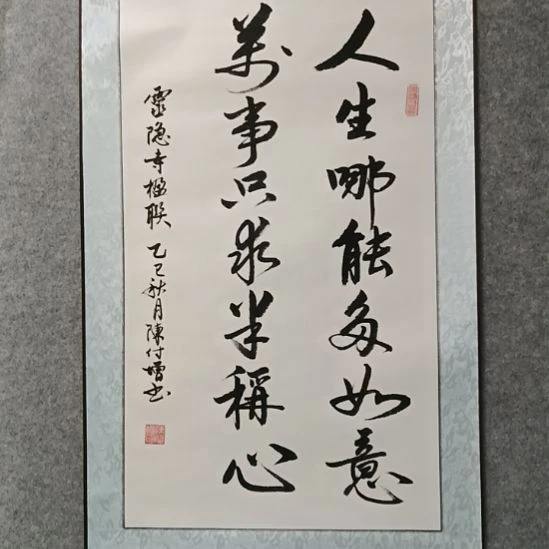 人生哪能多如意
萬事只求半稱心
靈隐寺楹联 乙巳秋月陳付增书